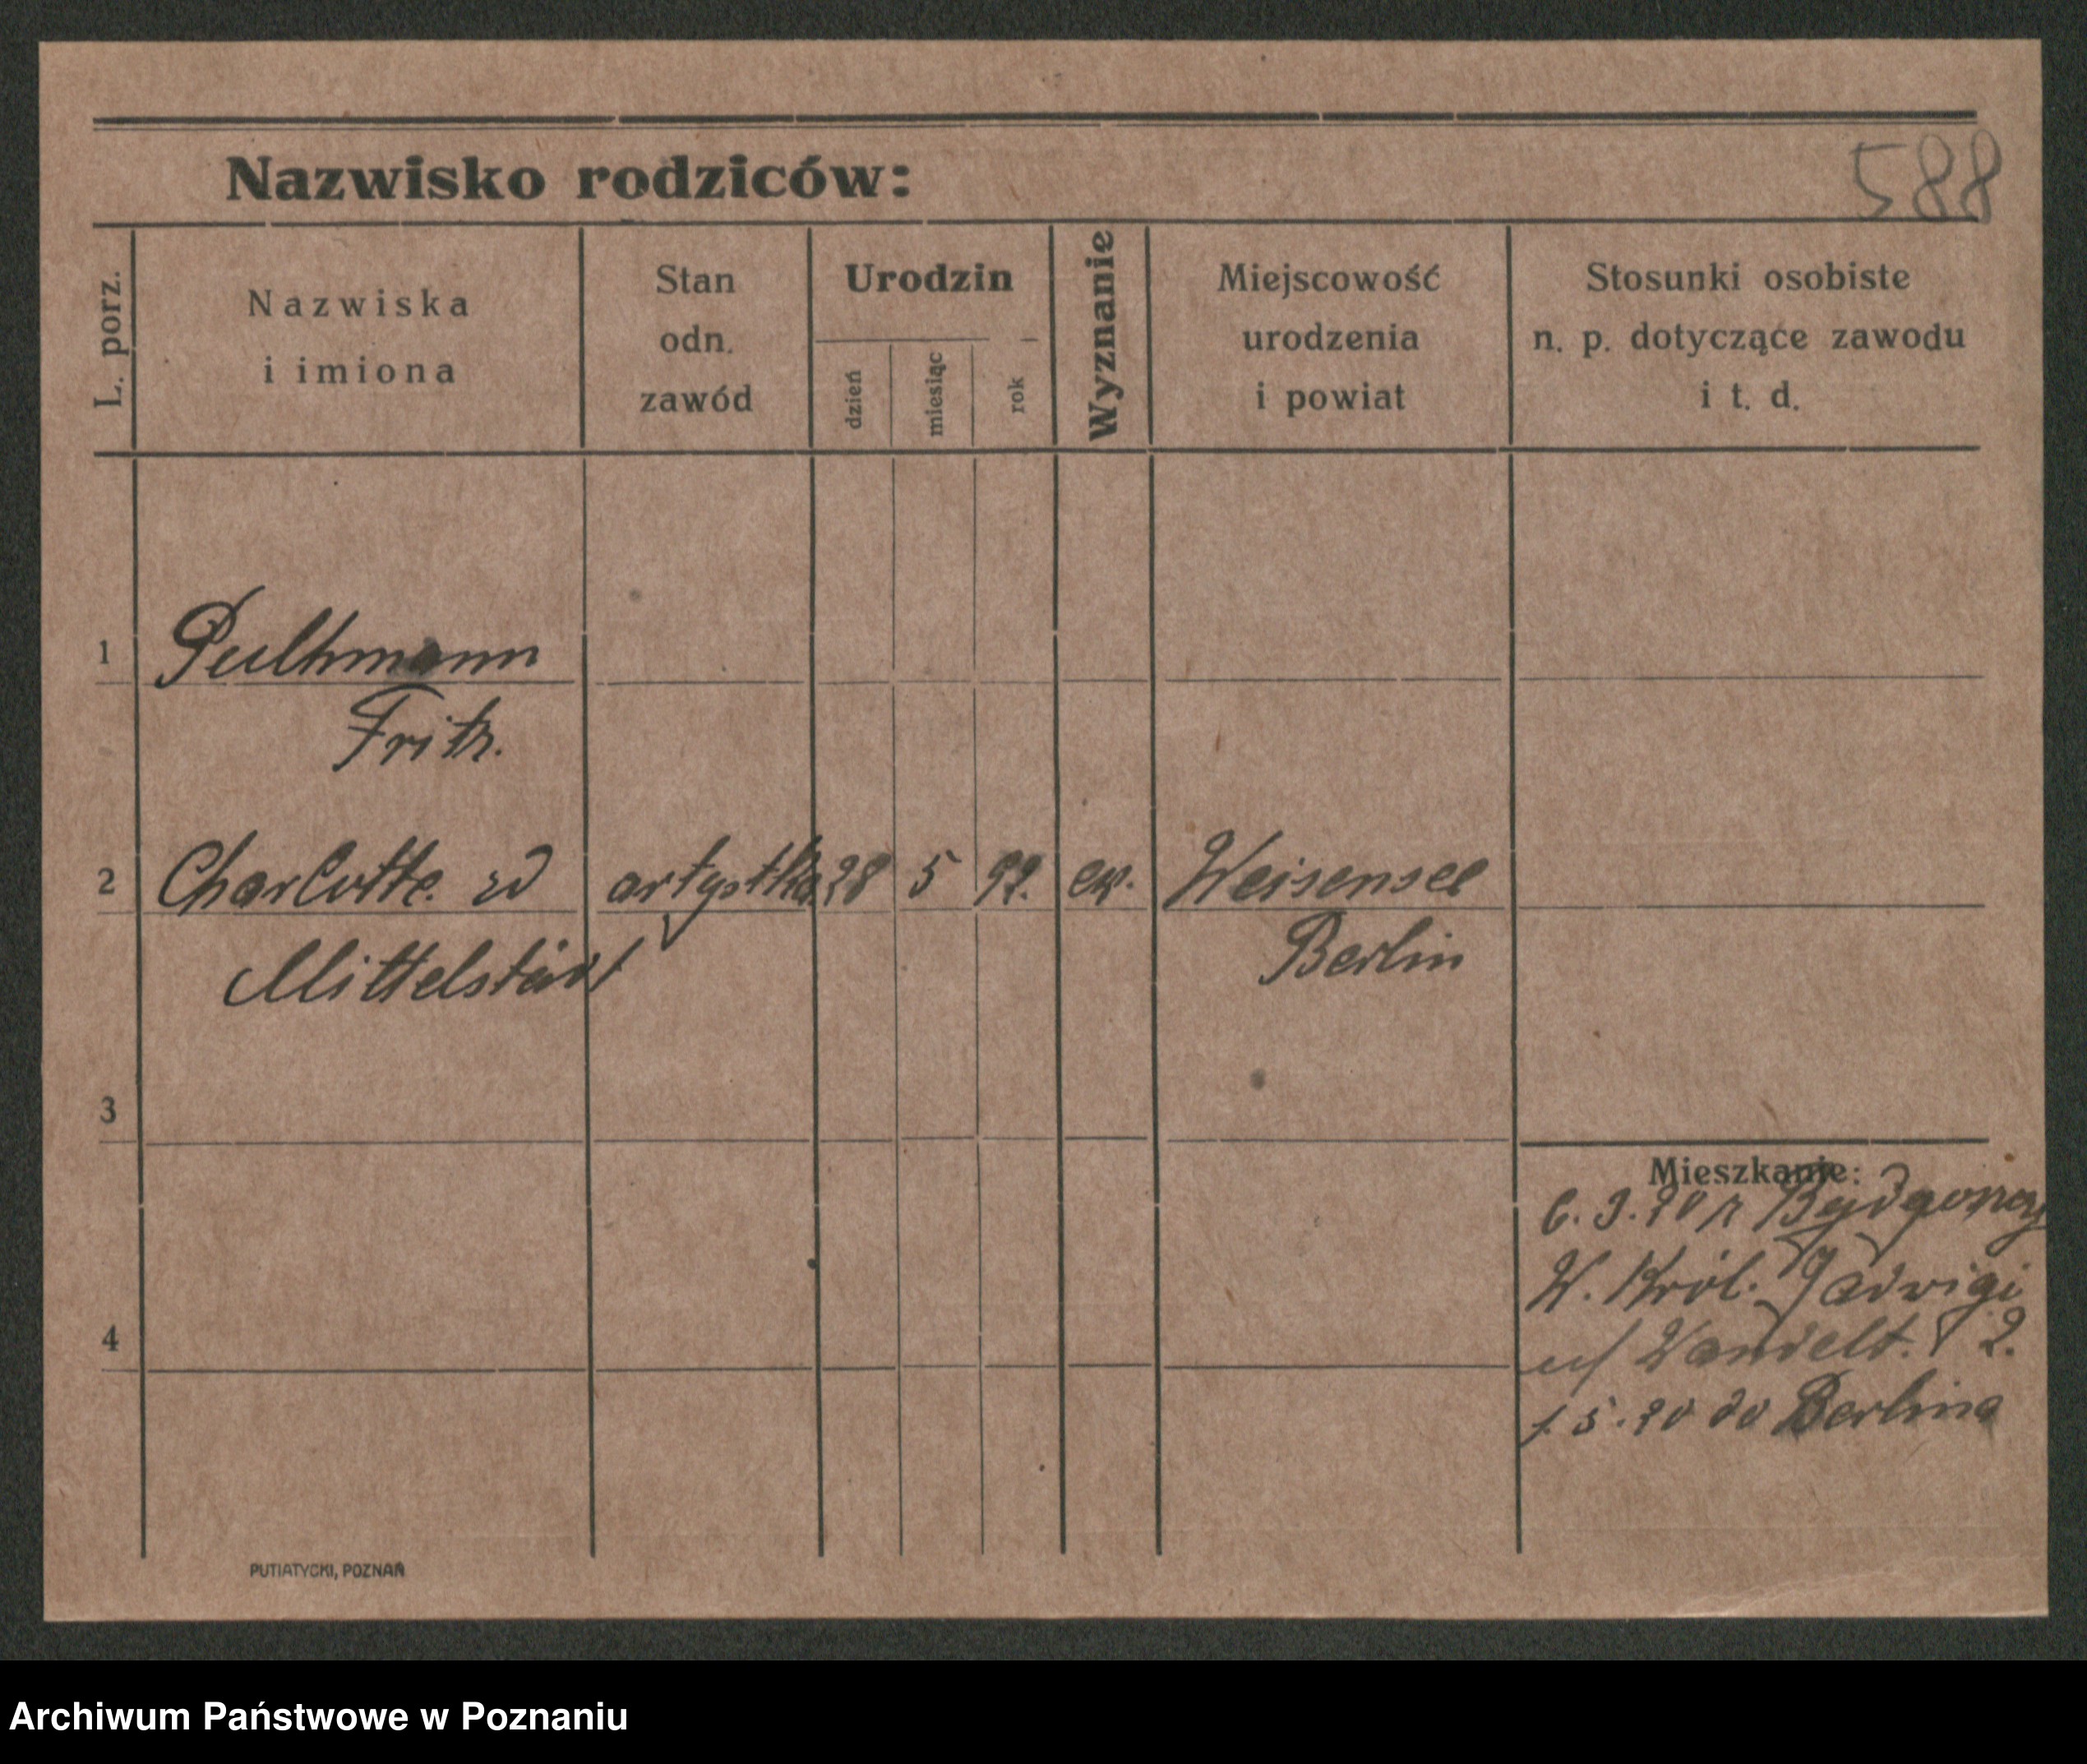 Nazwisko rodziców:
588
L. porz.
Nazwiska
i imiona
Stan
odn.
zawód
Urodzin
dzień
miesiąc
rok
Wyznanie
Miejscowość
urodzenia
i powiat
Stosunki osobiste
n. p. dotyczące zawodu
i t. d.
1
Pulhmann
Fritz.
2 Charlotte zd artystka 28 5 92. ew. Weisensee
Mittelstädt Berlin
3
Mieszkanie:
6. 3. 20 z Bydgoszczy
W. Król. Jadwigi
u/ Wandelt. 2.
1. 5. 20 do Berlina
4
PUTIATYCKI, POZNAŃ
Archiwum Państwowe w Poznaniu